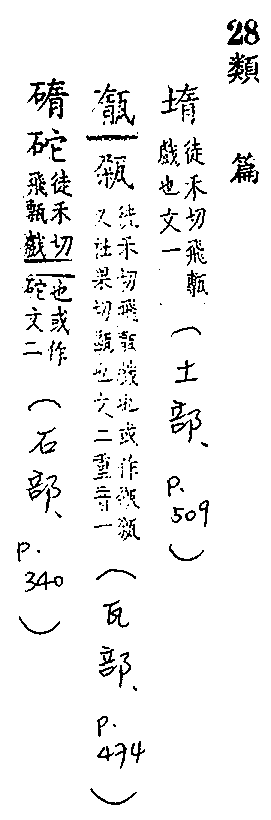 28 類篇
徒禾切飛甎
戲也文一
(土部、p.509)
徒禾切飛甎戲也或作
又杜果切甎也文二重音一
(瓦部、p.474)
碢砣 徒禾切
飛甎戲也或作
砣文二
(石部、p.340)